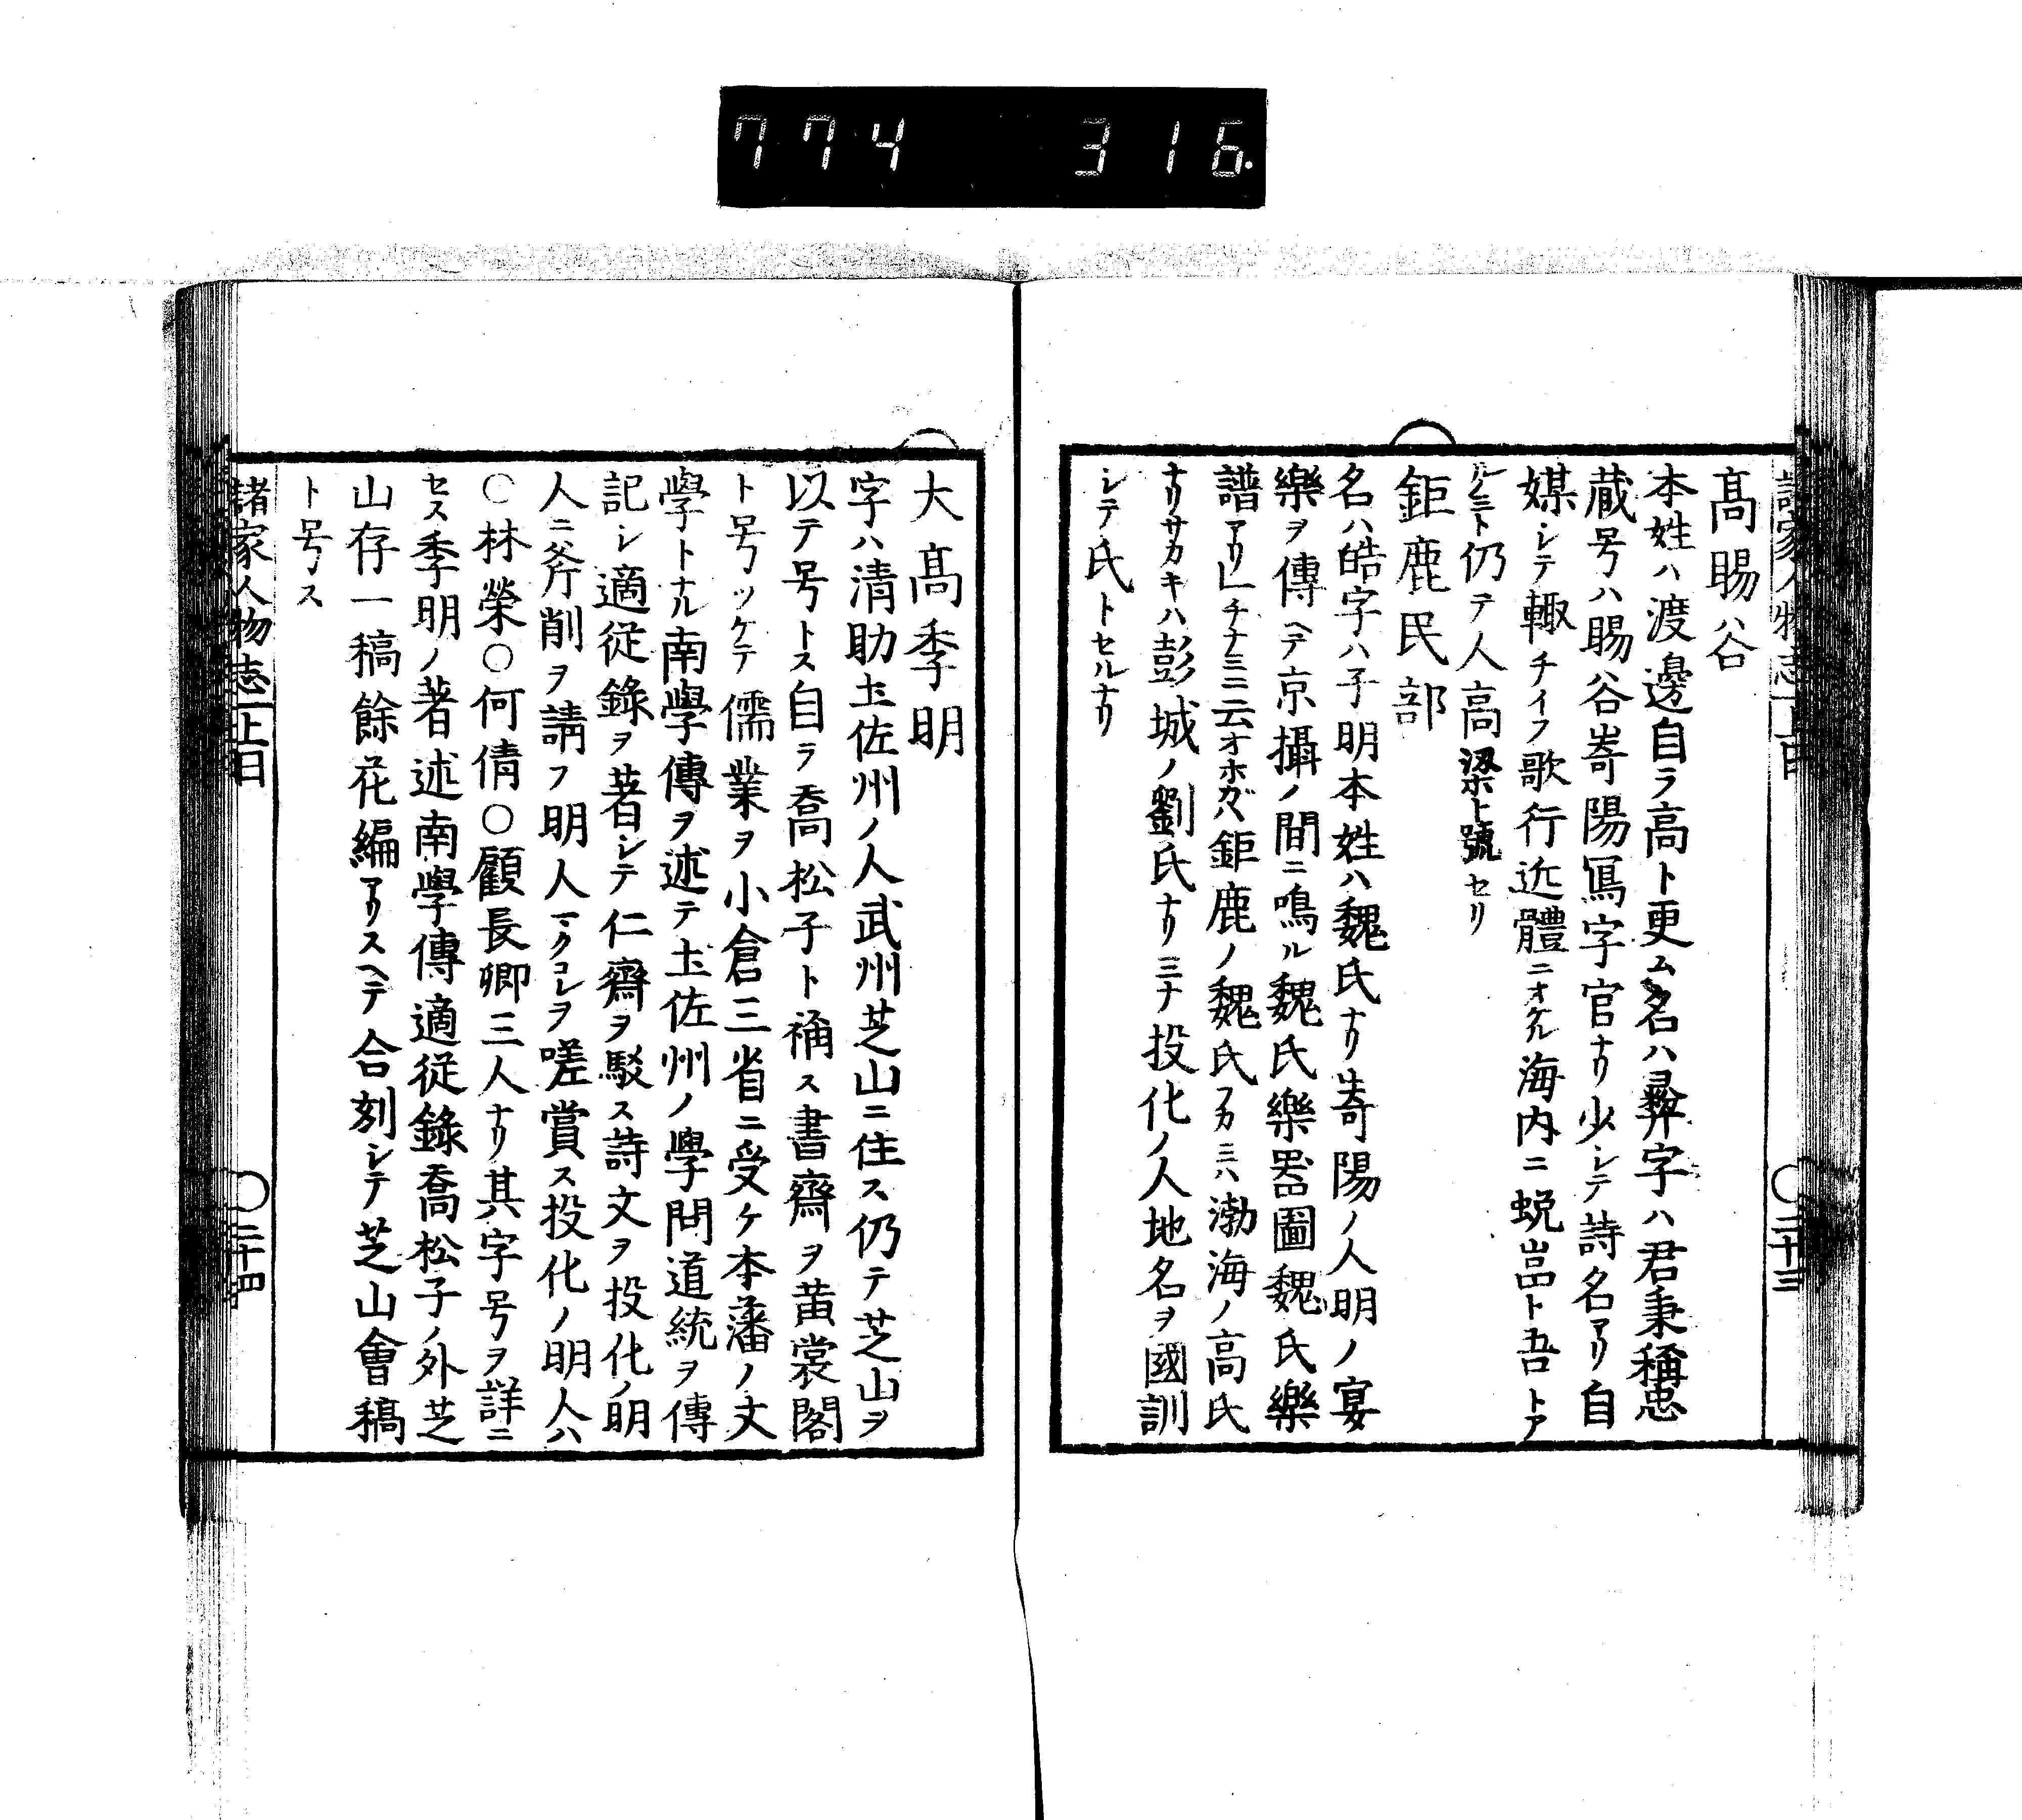 774 316
高暘谷
本姓ハ渡邊自ラ高ト更ム名ハ彝字ハ君秉稱忠
蔵号ハ暘谷嵜陽冩字官ナリ少シテ詩名アリ自
媒シテ輙チイフ歌行近體ニオケル海内ニ蛻嵓ト吾トア
ルノミト仍テ人高梁ト號セリ
鉅鹿民部
名ハ皓字ハ子明本姓ハ魏氏ナリ嵜陽ノ人明ノ宴
樂ヲ傳ヘテ京攝ノ間ニ鳴ル魏氏樂器圖魏氏樂
譜アリ因チナミニ云オホガハ鉅鹿ノ魏氏フカミハ渤海ノ高氏
ナリサカキハ彭城ノ劉氏ナリミナ投化ノ人地名ヲ國訓
シテ氏トセルナリ
大髙季明
字ハ清助土佐州ノ人武州芝山ニ住ス仍テ芝山ヲ
以テ号トス自ラ喬松子ト稱ス書齋ヲ黄裳閣
ト号ツケテ儒業ヲ小倉三省ニ受ケ本藩ノ文
學トナル南學傳ヲ述テ土佐州ノ學問道統ヲ傳
記シ適従錄ヲ著シテ仁齋ヲ駁ス詩文ヲ投化ノ明
人ニ斧削ヲ請フ明人マタコレヲ嗟賞ス投化ノ明人ハ
○林榮○何倩○顧長卿三人ナリ其字号ヲ詳ニ
セス季明ノ著述南學傳適従錄喬松子ノ外芝
山存一稿餘花編アリスヘテ合刻シテ芝山會稿
ト号ス
諸家人物志 上 二十四